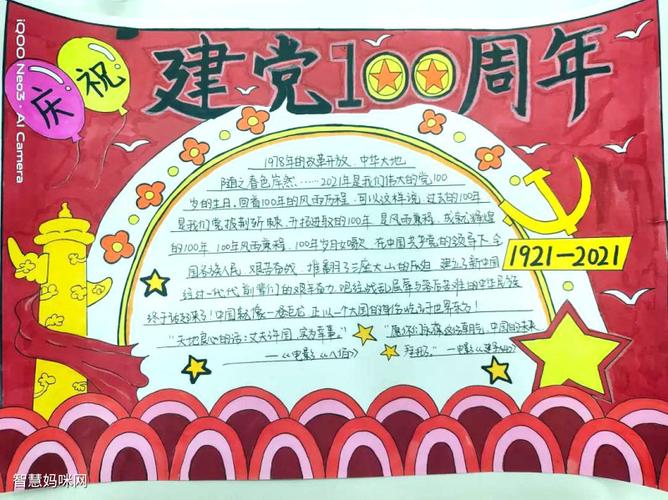 iQOO Neo3 · AI Camera
庆祝
建党100周年
1978年的改革开放,中华大地
随之春色岸然……2021年是我们伟大的党100
岁的生日,回首100年的风雨历程,可以这样说,过去的100年
是我们党披荆斩棘、开拓进取的100年,是风雨兼程、成就辉煌
的100年,100年风雨兼程,100年岁月如歌,在中国共产党的领导下,全
国各族人民,艰苦奋战,推翻了三座大山的压迫,建立了新中国
经过一代代前辈们的艰辛奋力,
终于
中国就像一条巨龙,正以一个大国的身份屹立于世界东方!
1921—2021
"天地良心的话:丈夫许国,实为幸事。"
——《电影《八佰》
"愿你们
中国的未来
拜托了。"
—电影《建军大业》
智慧妈咪网